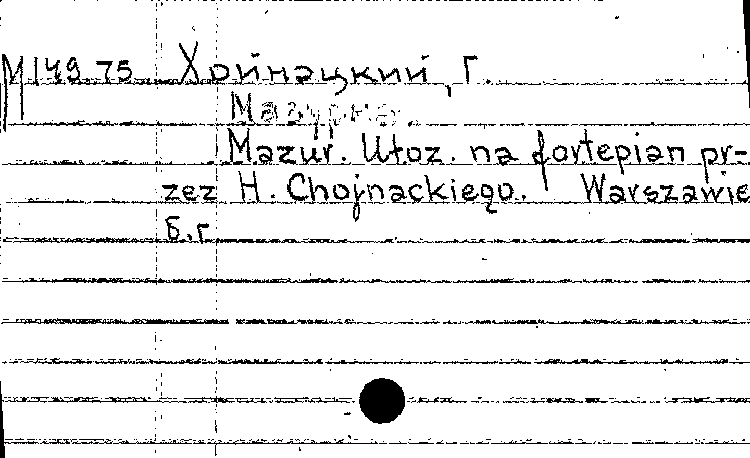 М 149.75 Хойнацкий, Г.
Мазурка.
Mazur. Ułoz. na fortepian pr-
zez H. Chojnackiego. Warszawie
б.г.